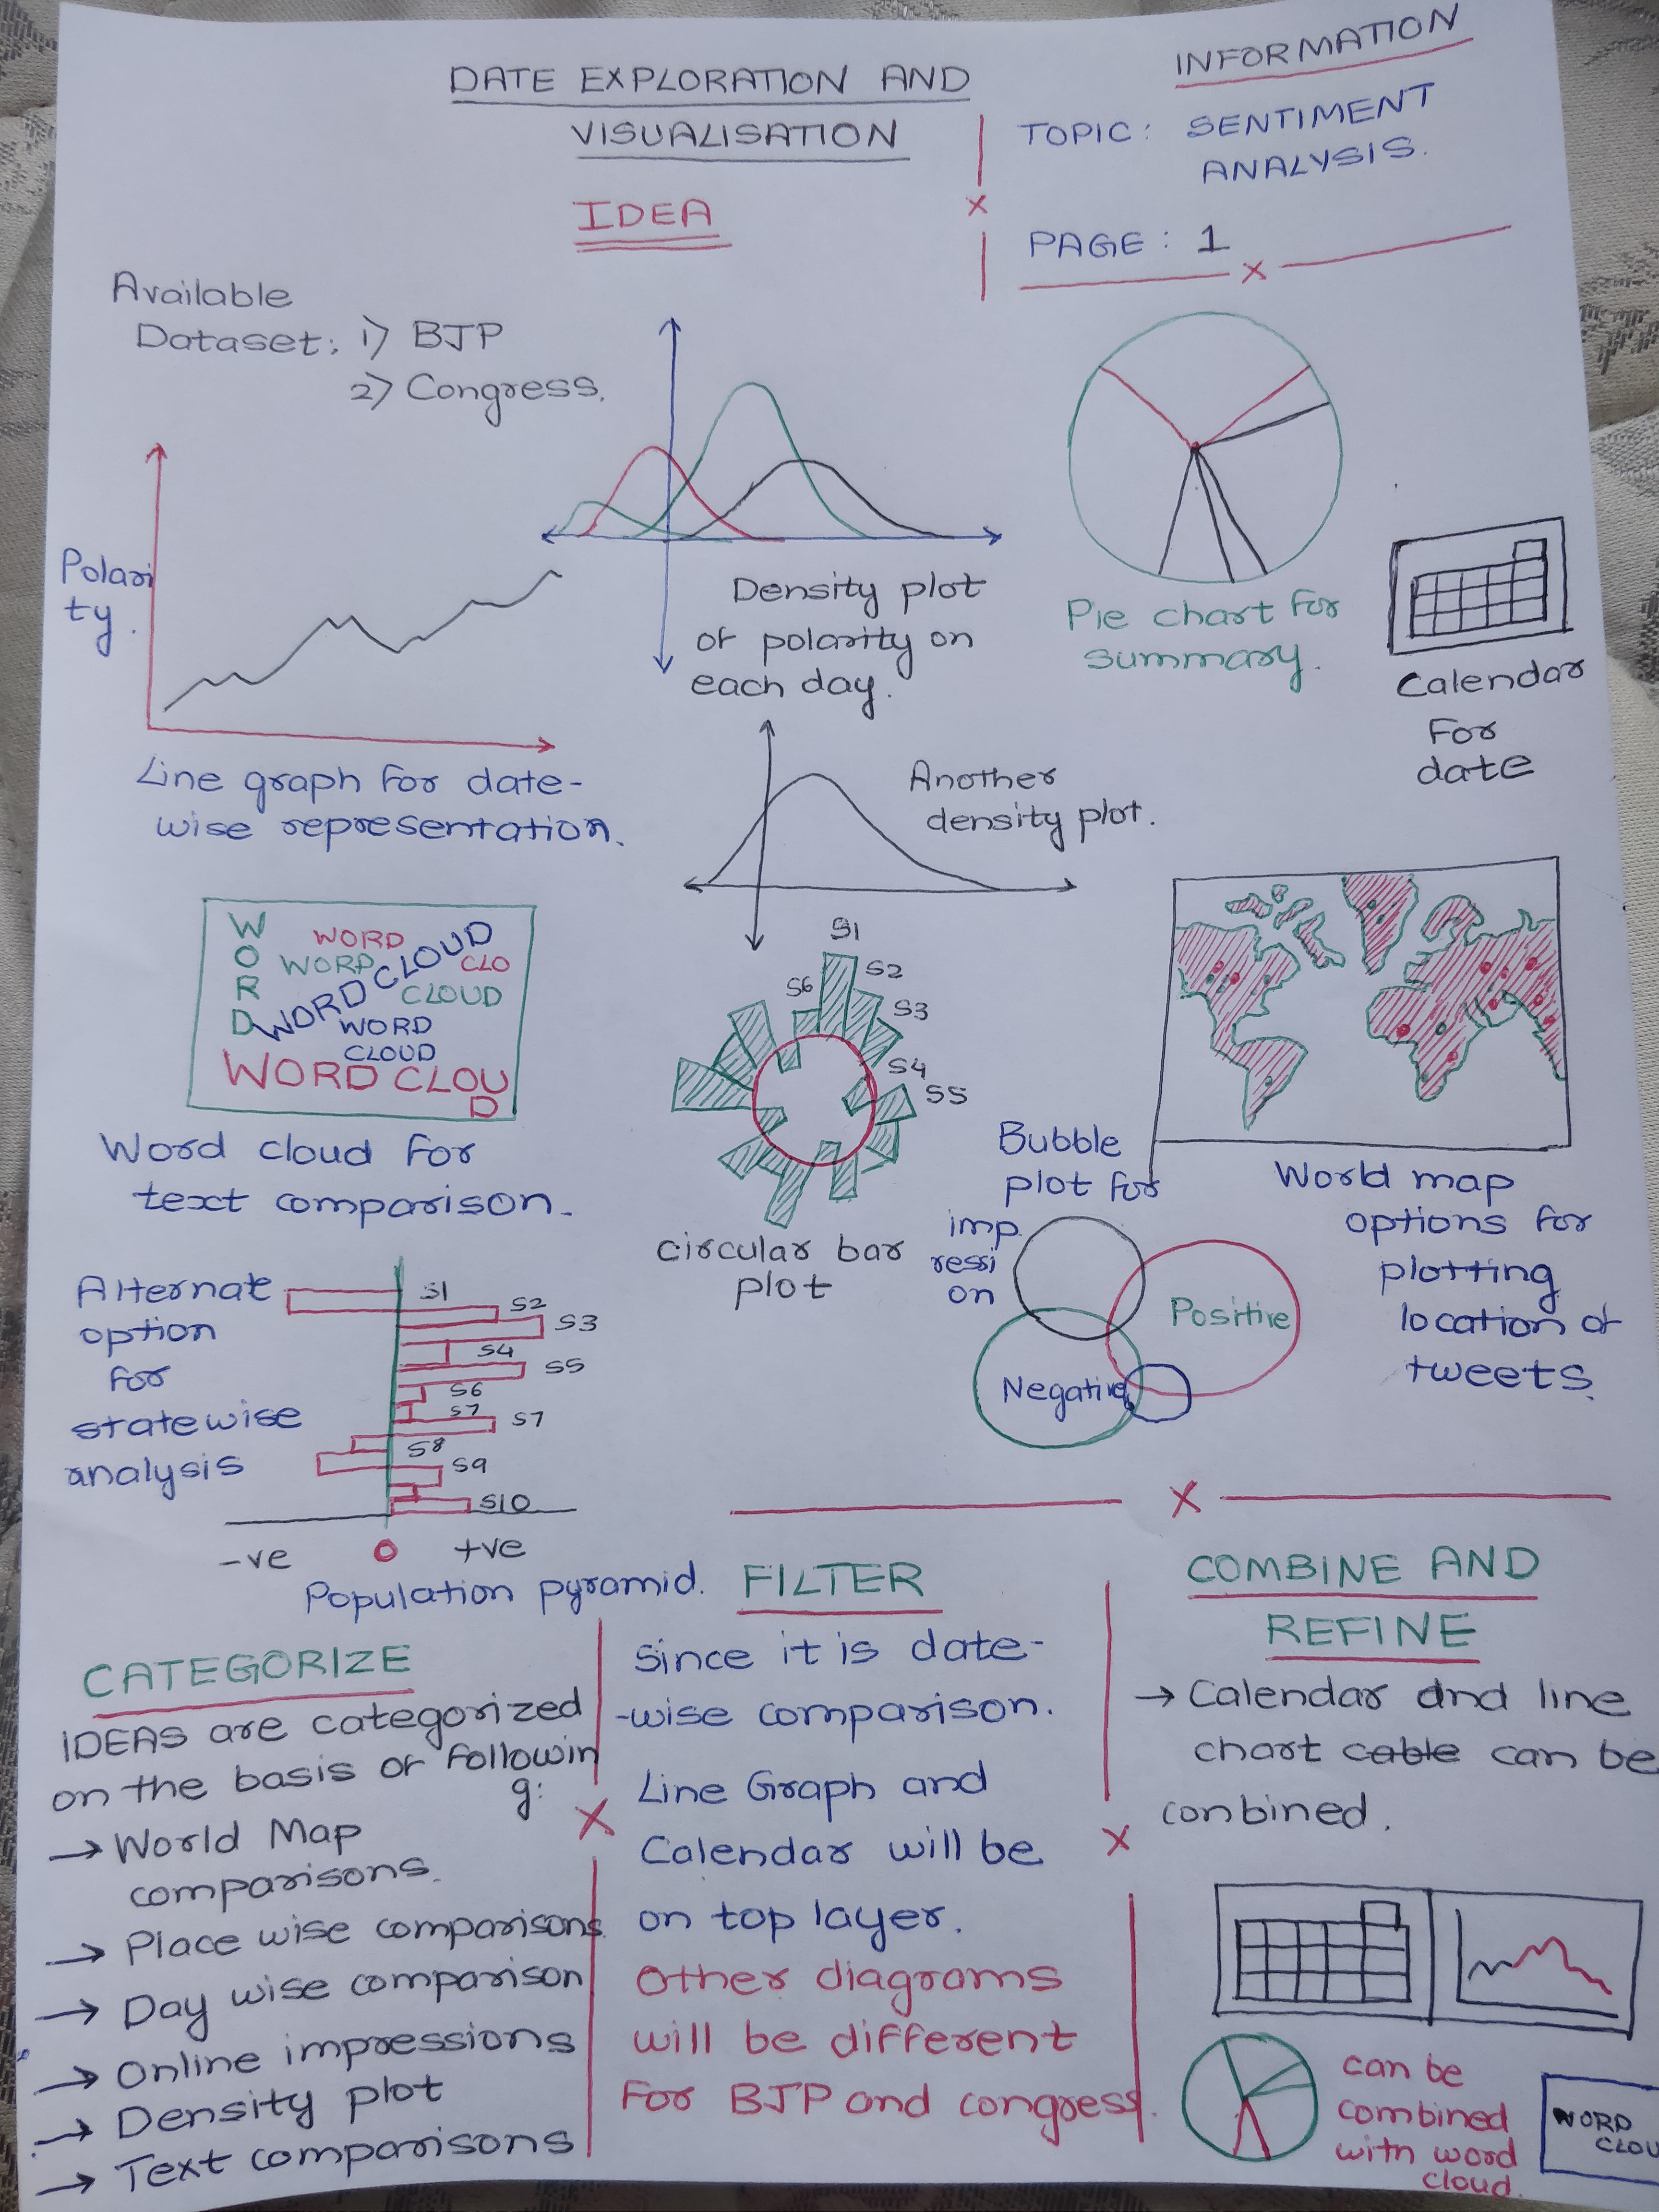 DATE EXPLORATION AND
VISUALISATION
IDEA
INFORMATION
TOPIC: SENTIMENT
ANALYSIS.
PAGE: 1
Available
Dataset: 1) BJP
2) Congress.
Polari
ty.
Line graph for date-
wise representation.
Density plot
of polarity on
each day.
Pie chart for
summary.
Calendar
For
date
Another
density plot.
W
O
R
D
WORD
WORD
WORD CLOUD
CLO
CLOUD
WORD
CLOUD
WORD CLOU
D
Word cloud for
text comparison.
S1
S2
S3
S4
S5
S6
circular bar
plot
World map
options for
plotting
location of
tweets.
Bubble
plot for
imp
ressi
on
Positive
Negative
Alternate
option
for
statewise
analysis
S1
S2
S3
S4
S5
S6
S7
S7
S8
S9
S10
-ve 0 +ve
Population pyramid.
CATEGORIZE
IDEAS are categorized
on the basis of followin
g:
→ World Map
comparisons.
→ Place wise comparisons.
→ Day wise comparison
→ Online impressions
→ Density plot
→ Text comparisons
FILTER
Since it is date-
-wise comparison.
Line Graph and
Calendar will be
on top layer.
Other diagrams
will be different
For BJP and congress.
COMBINE AND
REFINE
→ Calendar and line
chart cable can be
combined.
can be
combined
with word
cloud.
WORD
CLOU